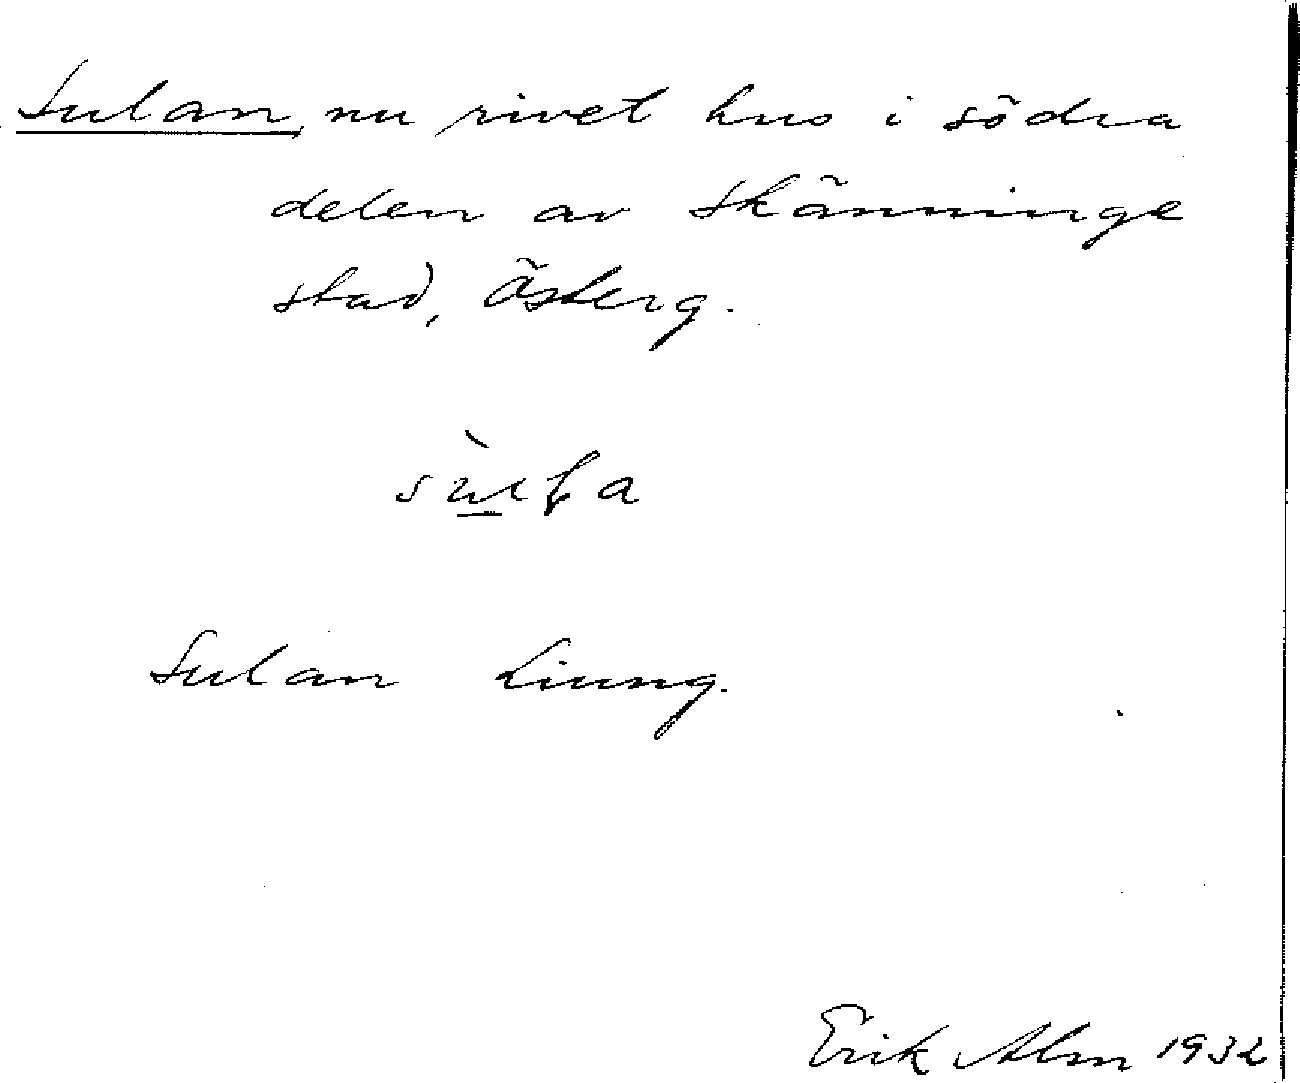 Sulan, nu rivet hus i södra
delen av Skänninge
stad, Österg.
Sulan Liung.
Erik Alm 1932